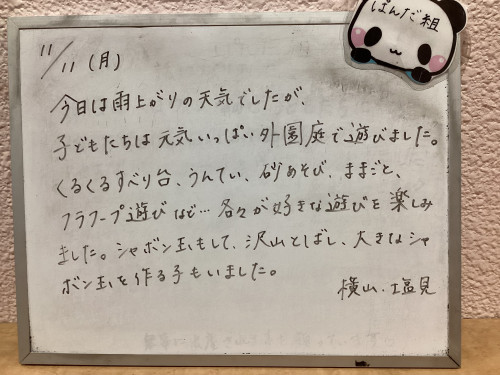 ぱんだ組
11/11(月)
今日は雨上がりの天気でしたが、
子どもたちは元気いっぱい外園庭で遊びました。
くるくるすべり台、うんてい、砂あそび、ままごと、
フラフープ遊びなど…各々が好きな遊びを楽しみ
ました。シャボン玉もして、沢山とばし、大きなシャ
ボン玉を作る子もいました。
横山・塩見